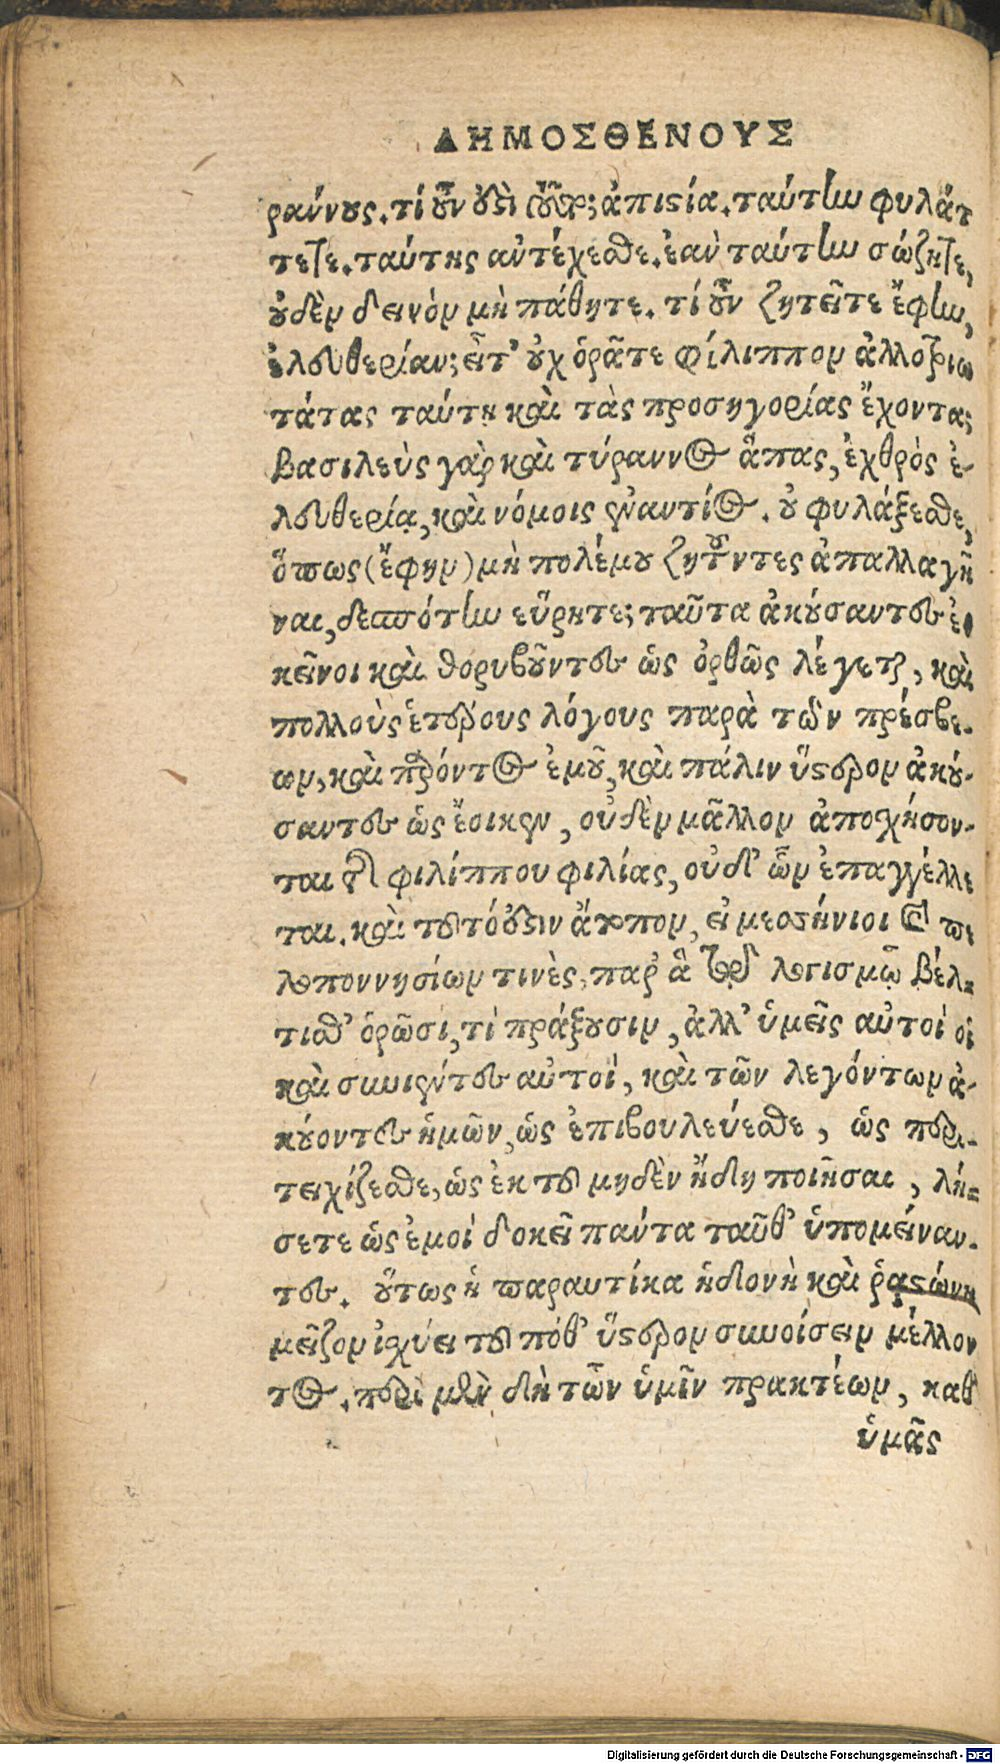 ΔΗΜΟΣΘΕΝΟΥΣ
ράννους. τί οὖν οὐδὲν τοῦτό; ἀπιστία. ταύτην φυλάτ
τετε. ταύτης ἀντέχεσθε. ἐὰν ταύτην σώζητε,
οὐδὲν δεινὸν μὴ πάθητε. τί οὖν ζητεῖτε ἔφην,
ἐλευθερίαν; εἶτ’ οὐχ ὁρᾶτε φίλιππον ἀλλοτριω
τάτας ταύτῃ καὶ τὰς προσηγορίας ἔχοντα;
βασιλεὺς γὰρ καὶ τύραννος ἅπας, ἐχθρὸς ἐ-
λευθερίᾳ, καὶ νόμοις ἐναντίος. οὐ φυλάξεσθε,
ὅπως (ἔφην) μὴ πολέμου ζητοῦντες ἀπαλλαγῆ
ναι, δεσπότην εὕρητε; ταῦτα ἀκούσαντες ἐ-
κεῖνοι καὶ θορυβοῦντες ὡς ὀρθῶς λέγεται, καὶ
πολλοὺς ἑτέρους λόγους παρὰ τῶν πρέσβε-
ων, καὶ παρόντος ἐμοῦ, καὶ πάλιν ὕστερον ἀκού-
σαντες ὡς ἔοικεν, οὐδὲν μᾶλλον ἀποσχήσον-
ται τῆς φιλίππου φιλίας, οὐδ’ ὧν ἐπαγγέλλε
ται. καὶ οὐ τοῦτ’ ἔστιν ἄτοπον, εἰ μεσσήνιοι καὶ πε
λοποννησίων τινὲς, παρ’ ἃ τῷ λογισμῷ βέλ-
τισθ’ ὁρῶσι, τὶ πράξουσιν, ἀλλ’ ὑμεῖς αὐτοὶ οἱ
καὶ συνιέντες αὐτοὶ, καὶ τῶν λεγόντων ἀ-
κούοντες ἡμῶν, ὡς ἐπιβουλεύεσθε, ὡς περι-
τειχίζεσθε, ὡς ἐκ τοῦ μηδὲν ἤδη ποιῆσαι, λή-
σετε ὡς ἐμοὶ δοκεῖ πάντα ταῦθ’ ὑπομείναν-
τες. οὕτως ἡ παραυτίκα ἡδονὴ καὶ ῥᾳστώνη
μεῖζον ἰσχύει τοῦ πόθ’ ὕστερον συνοίσειν μέλλον
τος. περὶ μὲν δὴ τῶν ὑμῖν πρακτέων, καθ’
ὑμᾶς
Digitalisierung gefördert durch die Deutsche Forschungsgemeinschaft - DFG